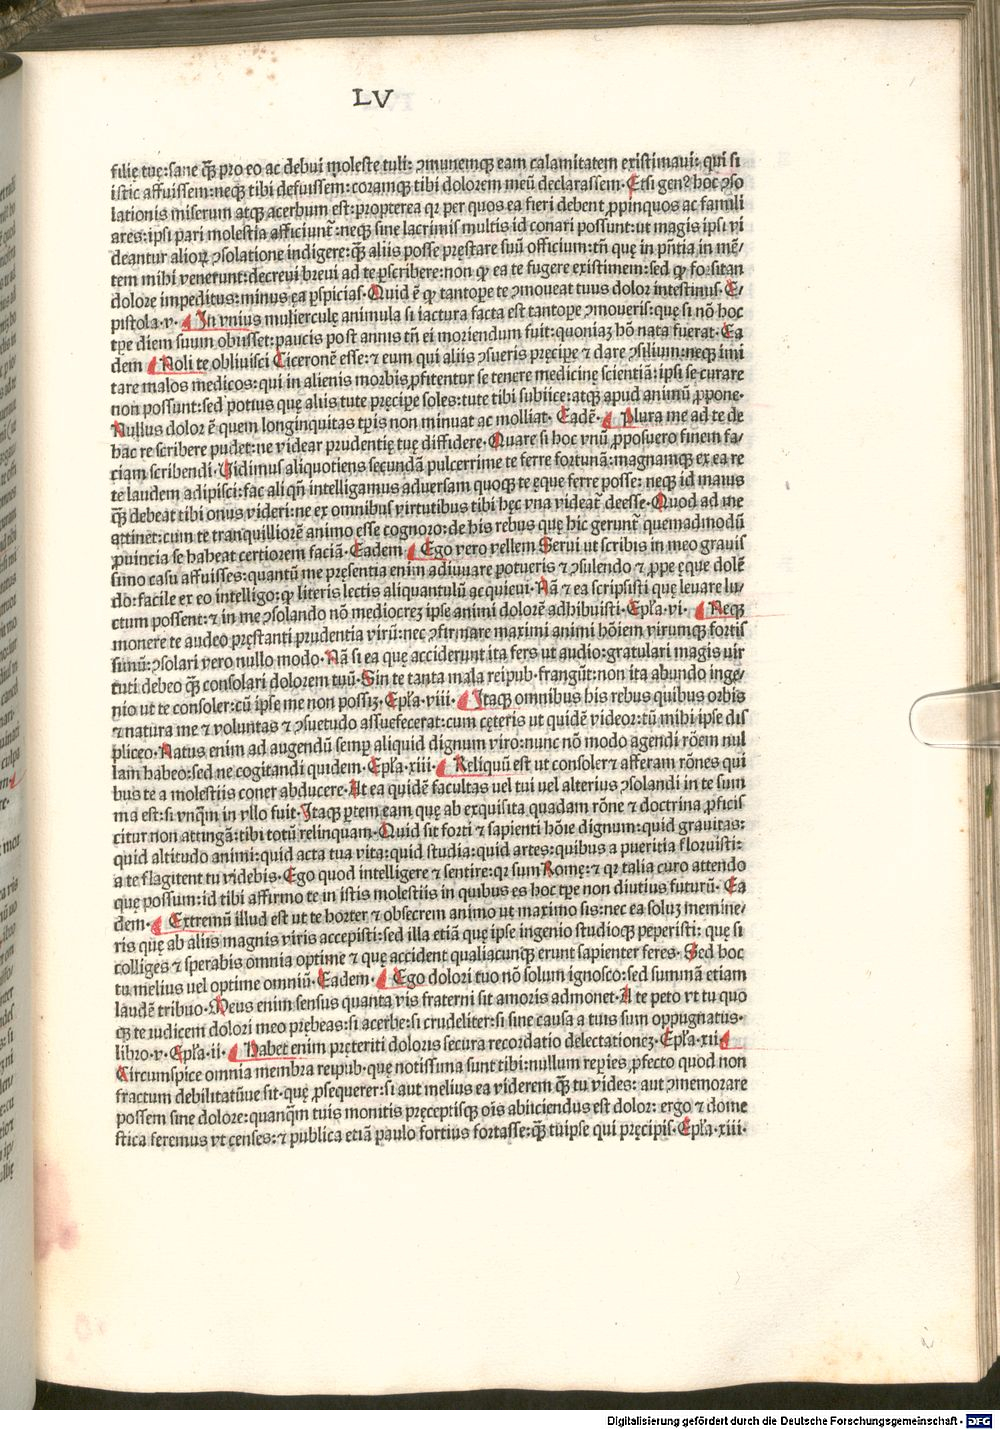 LV
filię tuę: sane q̃ꝫ pro eo ac debui moleste tuli: ꝯmunemqꝫ eam calamitatem existimaui: qui si
istic affuissem: neqꝫ tibi defuissem: coramqꝫ tibi dolorem meū declarassem· Etsi genꝰ hoc ꝯso
lationis miserum atqꝫ acerbum est: propterea qꝛ per quos ea fieri debent ꝓpinquos ac famili
ares: ipsi pari molestia afficiunt̃: neqꝫ sine lacrimis multis id conari possunt: ut magis ipsi vi
deantur alioꝝ ꝯsolatione indigere: q̃ꝫ aliis posse pręstare suū officium: tñ quę in pñtia in mē/
tem mihi venerunt: decreui breui ad te pscribere: non ꝙ ea te fugere existimem: sed ꝙ forsitan
dolore impeditus: minus ea pspicias· Quid ē ꝙ tantope te ꝯmoueat tuus dolor intestinus· E/
pistola·v· In vnius mulierculę animula si iactura facta est tantope ꝯmoueris: que si nō hoc
tpe diem suum obiisset: paucis post annis tñ ei moriendum fuit: quoniaꝫ hō nata fuerat· Ea
dem Noli te obliuisci Ciceronē esse: ⁊ eum qui aliis ꝯsueris pręcipe ⁊ dare ꝯsilium: neqꝫ imi
tare malos medicos: qui in alienis morbis ꝓfitentur se tenere medicinę scientiā: ipsi se curare
non possunt: sed potius quę aliis tute pręcipe soles: tute tibi subiice: atqꝫ apud animū ꝓpone·
Nullus dolor ē quem longinquitas tpis non minuat ac molliat· Eadē· Plura me ad te de
hac re scribere pudet: ne videar prudentię tuę diffidere· Quare si hoc vnū ꝓposuero finem fa/
ciam scribendi· Vidimus aliquotiens secundā pulcerrime te ferre fortunā: magnamqꝫ ex ea re
te laudem adipisci: fac ali qñ intelligamus aduersam quoqꝫ te ęque ferre posse: neqꝫ id maius
q̃ꝫ debeat tibi onus videri: ne ex omnibus virtutibus tibi hęc vna videat̃ deesse· Quod ad me
attinet: cum te tranquilliorē animo esse cognoro: de his rebus quę hic gerunt̃ quemadmodū
ꝓuincia se habeat certiorem faciā· Eadem Ego vero vellem Serui ut scribis in meo grauis
simo casu affuisses: quantū me pręsentia enim adiuuare potueris ⁊ ꝯsulendo ⁊ ꝓpe ęque dolē
do: facile ex eo intelligo: ꝙ literis lectis aliquantulū acquieui· Nā ⁊ ea scripsisti quę leuare lu/
ctum possent: ⁊ in me ꝯsolando nō mediocreꝫ ipse animi dolorē adhibuisti· Epl̃a·vi· Neqꝫ
monere te audeo pręstanti prudentia virū: nec ꝯfirmare maximi animi hōiem virumqꝫ fortis
simū: ꝯsolari vero nullo modo· Nā si ea quę acciderunt ita fers ut audio: gratulari magis vir
tuti debeo q̃ꝫ consolari dolorem tuū· Sin te tanta mala reipub· frangūt: non ita abundo inge/
nio ut te consoler: cū ipse me non possiꝫ· Epl̃a·viii· Itaqꝫ omnibus his rebus quibus orbis
⁊ natura me ⁊ voluntas ⁊ ꝯsuetudo assuefecerat: cum cęteris ut quidē videor: tū mihi ipse dis
pliceo· Natus enim ad augendū semp aliquid dignum viro: nunc nō modo agendi rōem nul
lam habeo: sed ne cogitandi quidem· Epl̃a·xiii· Reliquū est ut consoler ⁊ afferam rōnes qui
bus te a molestiis coner abducere· At ea quidē facultas uel tui uel alterius ꝯsolandi in te sum
ma est: si vnq̃m in vllo fuit· Itaqꝫ ptem eam quę ab exquisita quadam rōne ⁊ doctrina ꝓficis
citur non attingā: tibi totū relinquam· Quid sit forti ⁊ sapienti hōie dignum: quid grauitas:
quid altitudo animi: quid acta tua vita: quid studia: quid artes: quibus a pueritia floruisti:
a te flagitent tu videbis· Ego quod intelligere ⁊ sentire: qꝛ sum Romę: ⁊ qꝛ talia curo attendo
que possum: id tibi affirmo te in istis molestiis in quibus es hoc tpe non diutius futurū· Ea
dem· Extremū illud est ut te horter ⁊ obsecrem animo ut maximo sis: nec ea soluꝫ memine/
ris quę ab aliis magnis viris accepisti: sed illa etiā quę ipse ingenio studioqꝫ peperisti: quę si
colliges ⁊ sperabis omnia optime ⁊ quę accident qualiacunqꝫ erunt sapienter feres· Sed hoc
tu melius uel optime omniū· Eadem· Ego dolori tuo nō solum ignosco: sed summā etiam
laudē tribuo· Meus enim sensus quanta vis fraterni sit amoris admonet· A te peto vt tu quo
qꝫ te iudicem dolori meo prębeas: si acerbe: si crudeliter: si sine causa a tuis sum oppugnatus·
libro·v· Epl̃a·ii· Habet enim pręteriti doloris secura recordatio delectationeꝫ· Epl̃a·xii
Circumspice omnia membra reipub· que notissima sunt tibi: nullum repies ꝓfecto quod non
fractum debilitatūue sit· quę ꝓsequerer: si aut melius ea viderem q̃ꝫ tu vides: aut ꝯmemorare
possem sine dolore: quanq̃m tuis monitis pręceptisqꝫ oīs abiiciendus est dolor: ergo ⁊ dome
stica feremus vt censes: ⁊ publica etiā paulo fortius fortasse: q̃ꝫ tuipse qui pręcipis· Epl̃a·xiii·
Digitalisierung gefördert durch die Deutsche Forschungsgemeinschaft - DFG